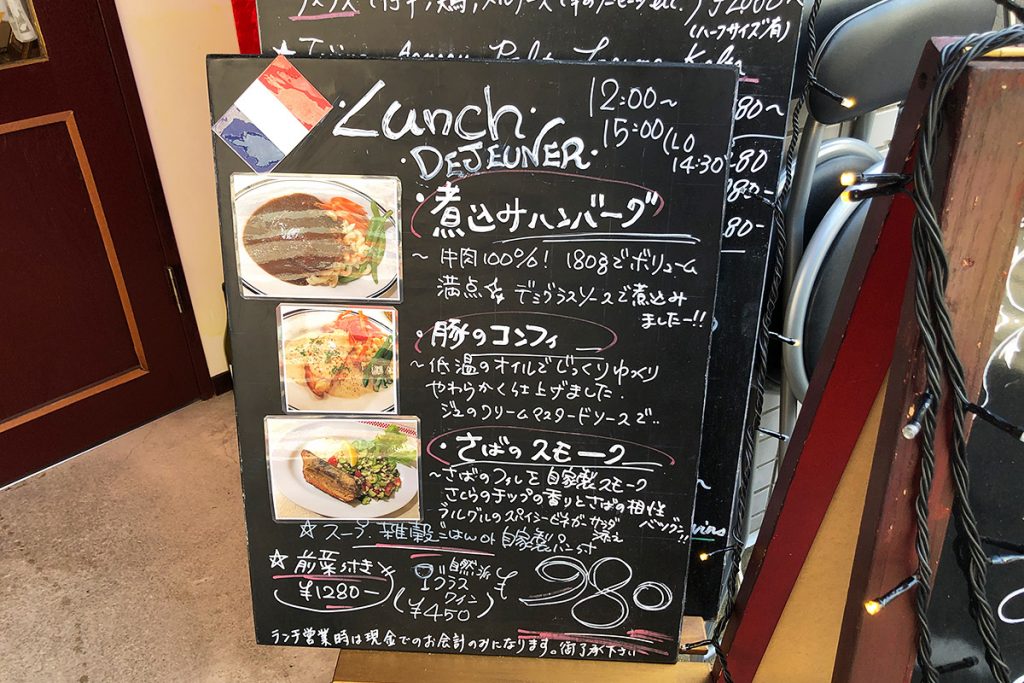 (ハーフサイズ有)
Lunch
DEJEUNER
12:00〜
15:00(LO
14:30
・煮込みハンバーグ
〜牛肉100%! 180gでボリューム
満点☆ デミグラスソースで煮込み
ましたー!!
・豚のコンフィ
〜低温のオイルでじっくりゆっくり
やわらかく仕上げました.
ジュのクリームマスタードソースで..
・さばのスモーク
〜さばのフィレを自家製スモーク
さくらのチップの香りとさばの相性
バツグン!!
ブルグルのスパイシービネガーサラダ
添え
☆スープ.雑穀ごはんor自家製パン付
☆前菜付き
¥1280-
自然派
グラス
ワイン
(¥450)
¥980
ランチ営業時は現金でのお会計のみになります。御了承下さい
80〜
-80
980-
80-
vins